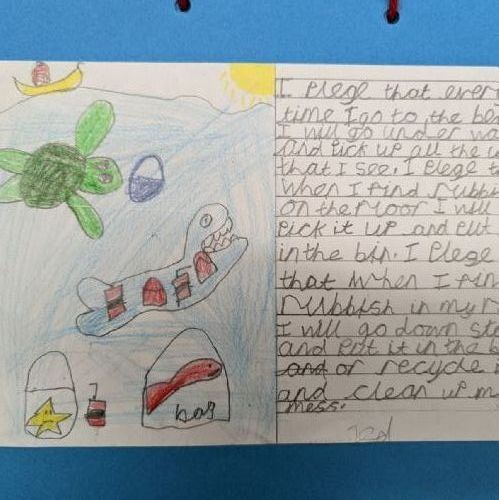 I Plege that ever
time I go to the be
I will go under wa
and Pick up all the
that I see. I Plege t
when I find rubb
on the floor I will
Pick it up and Put
in the bin. I Plege
that when I fin
rubbish in my r
I will go down st
and Put it in the b
and or recycle
and clean up m
mess.
bag